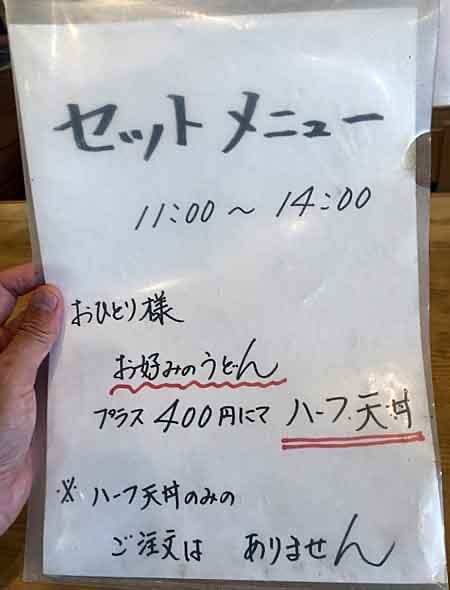 セットメニュー
11:00〜14:00
おひとり様
お好みのうどん
プラス400円にて ハーフ天丼
※ ハーフ天丼のみの
ご注文は ありません